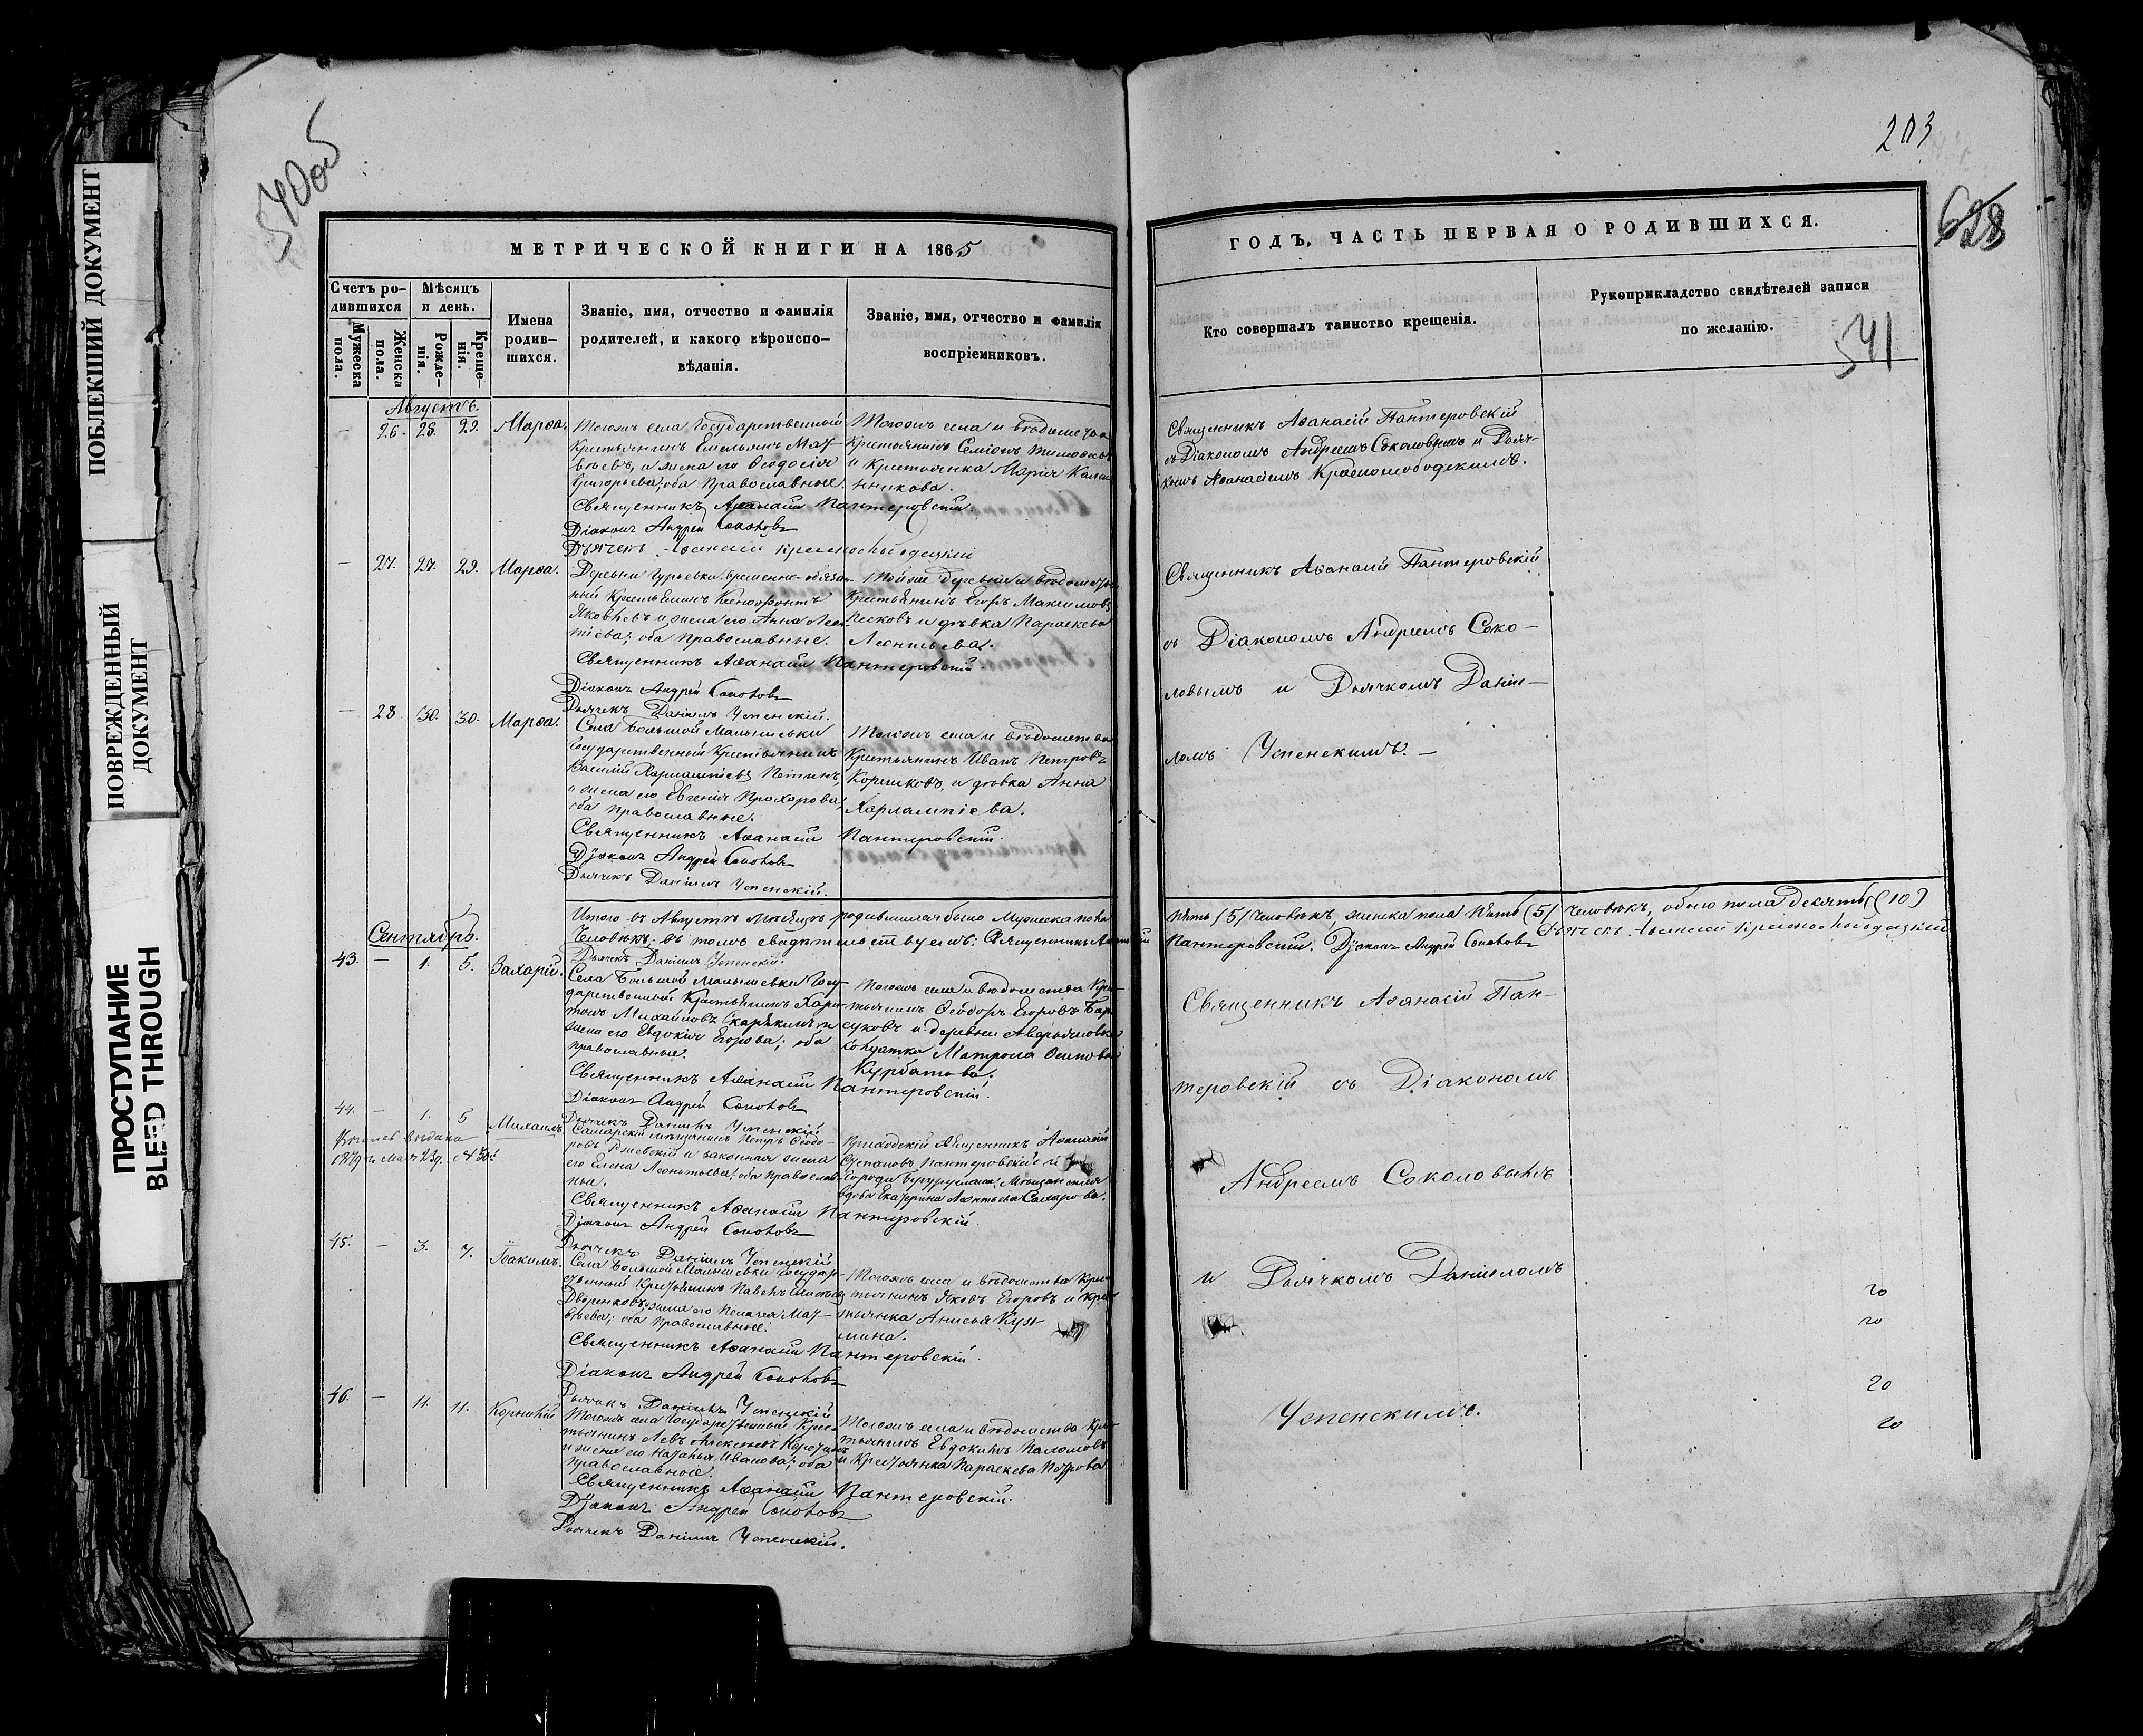 540об
203
628
541
ПОБЛЕКШИЙ ДОКУМЕНТ
ПОВРЕЖДЕННЫЙ
ДОКУМЕНТ
ПРОСТУПАНИЕ
BLEED THROUGH
МЕТРИЧЕСКОЙ КНИГИ НА 1865
Счетъ ро-
дившихся
Мужеска
пола.
Женска
пола.
Мѣсяцъ
и день.
Рожде-
нія.
Креще-
нія.
Имена
родив-
шихся.
Званіе, имя, отчество и фамилія
родителей, и какого вѣроиспо-
вѣданія.
Званіе, имя, отчество и фамилія
воспріемниковъ.
Августъ.
— 26. 28. 29. Марѳа.
Тогожъ села Государственный
Крестьянинъ Емельянъ Мат-
вѣевъ, и жена его Ѳеодосія
Григорьева; оба Православные.
Тогожъ села и вѣдомства
Крестьянинъ Семіонъ
и Крестьянка Марія
Священникъ Аѳанасій Пантеровскій.
Діаконъ Андрей Соколовъ
Дьячекъ Аѳанасій Краснослободскій
— 27. 27. 29. Марѳа.
Деревни Гурьевки временно-обязан-
ный Крестьянинъ Ксенофонтъ
Яковлевъ и жена его Анна Леон-
тіева; оба Православные.
Тойже деревни и вѣдомства
Крестьянинъ Егоръ Максимовъ
Песковъ и дѣвка Параскева
Леонтьева.
Священникъ Аѳанасій Пантеровскій.
Діаконъ Андрей Соколовъ
Дьячекъ Даніилъ Успенскій.
— 28. 30. 30. Марѳа.
Села Большой Малышевки
Государственный Крестьянинъ
Василій Харлампіевъ
и жена его Евгенія Прохорова,
оба Православные.
Тогожъ села и вѣдомства
Крестьянинъ Иванъ Петровъ
Корешковъ, и дѣвка Анна
Харлампіева.
Священникъ Аѳанасій Пантеровскій.
Діаконъ Андрей Соколовъ
Дьячекъ Даніилъ Успенскій.
Итого въ Августѣ мѣсяцѣ родившихся было Мужеска пола
Человѣкъ. Въ томъ свидѣтельствуемъ: Священникъ Аѳанасій
Дьячекъ Даніилъ Успенскій.
Сентябрь.
43. — 1. 5. Захарій.
Села Большой Малышевки Госу-
дарственный Крестьянинъ Хари-
тонъ Михайловъ и
жена его Евдокія Егорова; оба
православные.
Тогожъ села и вѣдомства Кре-
стьянинъ Ѳеодоръ Егоровъ
и деревни
солдатка Матрона Осипова
Курбатова.
Священникъ Аѳанасій Пантеровскій.
Діаконъ Андрей Соколовъ
Дьячекъ Даніилъ Успенскій
44. — 1. 5 Михаилъ
выдана
1879 г. Мая 23 д.
Самарскій мѣщанинъ Петръ Ѳеодо-
ровъ Ржевскій и законная жена
его Елена Леонтьева; оба Православ-
ные.
Приходскій Священникъ Аѳанасій
Степановъ Пантеровскій и
города Бугуруслана, Мѣщанская
вдова Екатерина Леонтьева Сахарова.
Священникъ Аѳанасій Пантеровскій.
Діаконъ Андрей Соколовъ
Дьячекъ Даніилъ Успенскій
45. — 3. 7. Іоакимъ.
Села Большой Малышевки Государ-
ственный Крестьянинъ Павелъ
жена его Пелагея Мат-
вѣева; оба Православные.
Тогожъ села и вѣдомства Кре-
стьянинъ Яковъ Егоровъ и Кре-
стьянка Анисья Кузь-
мина.
Священникъ Аѳанасій Пантеровскій.
Діаконъ Андрей Соколовъ
Дьячекъ Даніилъ Успенскій
46. — 11. 11. Корнилій
Тогожъ села Государственный Кре-
стьянинъ Левъ Алексѣевъ
и жена его Наталья Иванова; оба
Православные.
Тогожъ села и вѣдомства Кре-
стьянинъ Евдокимъ
и Крестьянка Параскева Петрова
Священникъ Аѳанасій Пантеровскій.
Діаконъ Андрей Соколовъ
Дьячекъ Даніилъ Успенскій.
ГОДЪ, ЧАСТЬ ПЕРВАЯ О РОДИВШИХСЯ.
Кто совершалъ таинство крещенія.
Рукоприкладство свидѣтелей записи
по желанію.
Священникъ Аѳанасій Пантеровскій
съ Діакономъ Андреемъ Соколовымъ и Дьяч-
комъ Аѳанасіемъ Краснослободскимъ.
Священникъ Аѳанасій Пантеровскій
съ Діакономъ Андреемъ Соко-
ловымъ и Дьячкомъ Даніи-
ломъ Успенскимъ. —
Пять (5) Человѣкъ, женска пола Пять (5) Человѣкъ, обоего пола десять (10)
Пантеровскій. Діаконъ Андрей Соколовъ Дьячекъ Аѳанасій Краснослободскій
Священникъ Аѳанасій Пан-
теровскій съ Діакономъ
Андреемъ Соколовымъ
и Дьячкомъ Даніиломъ
Успенскимъ.
20
20
20
20